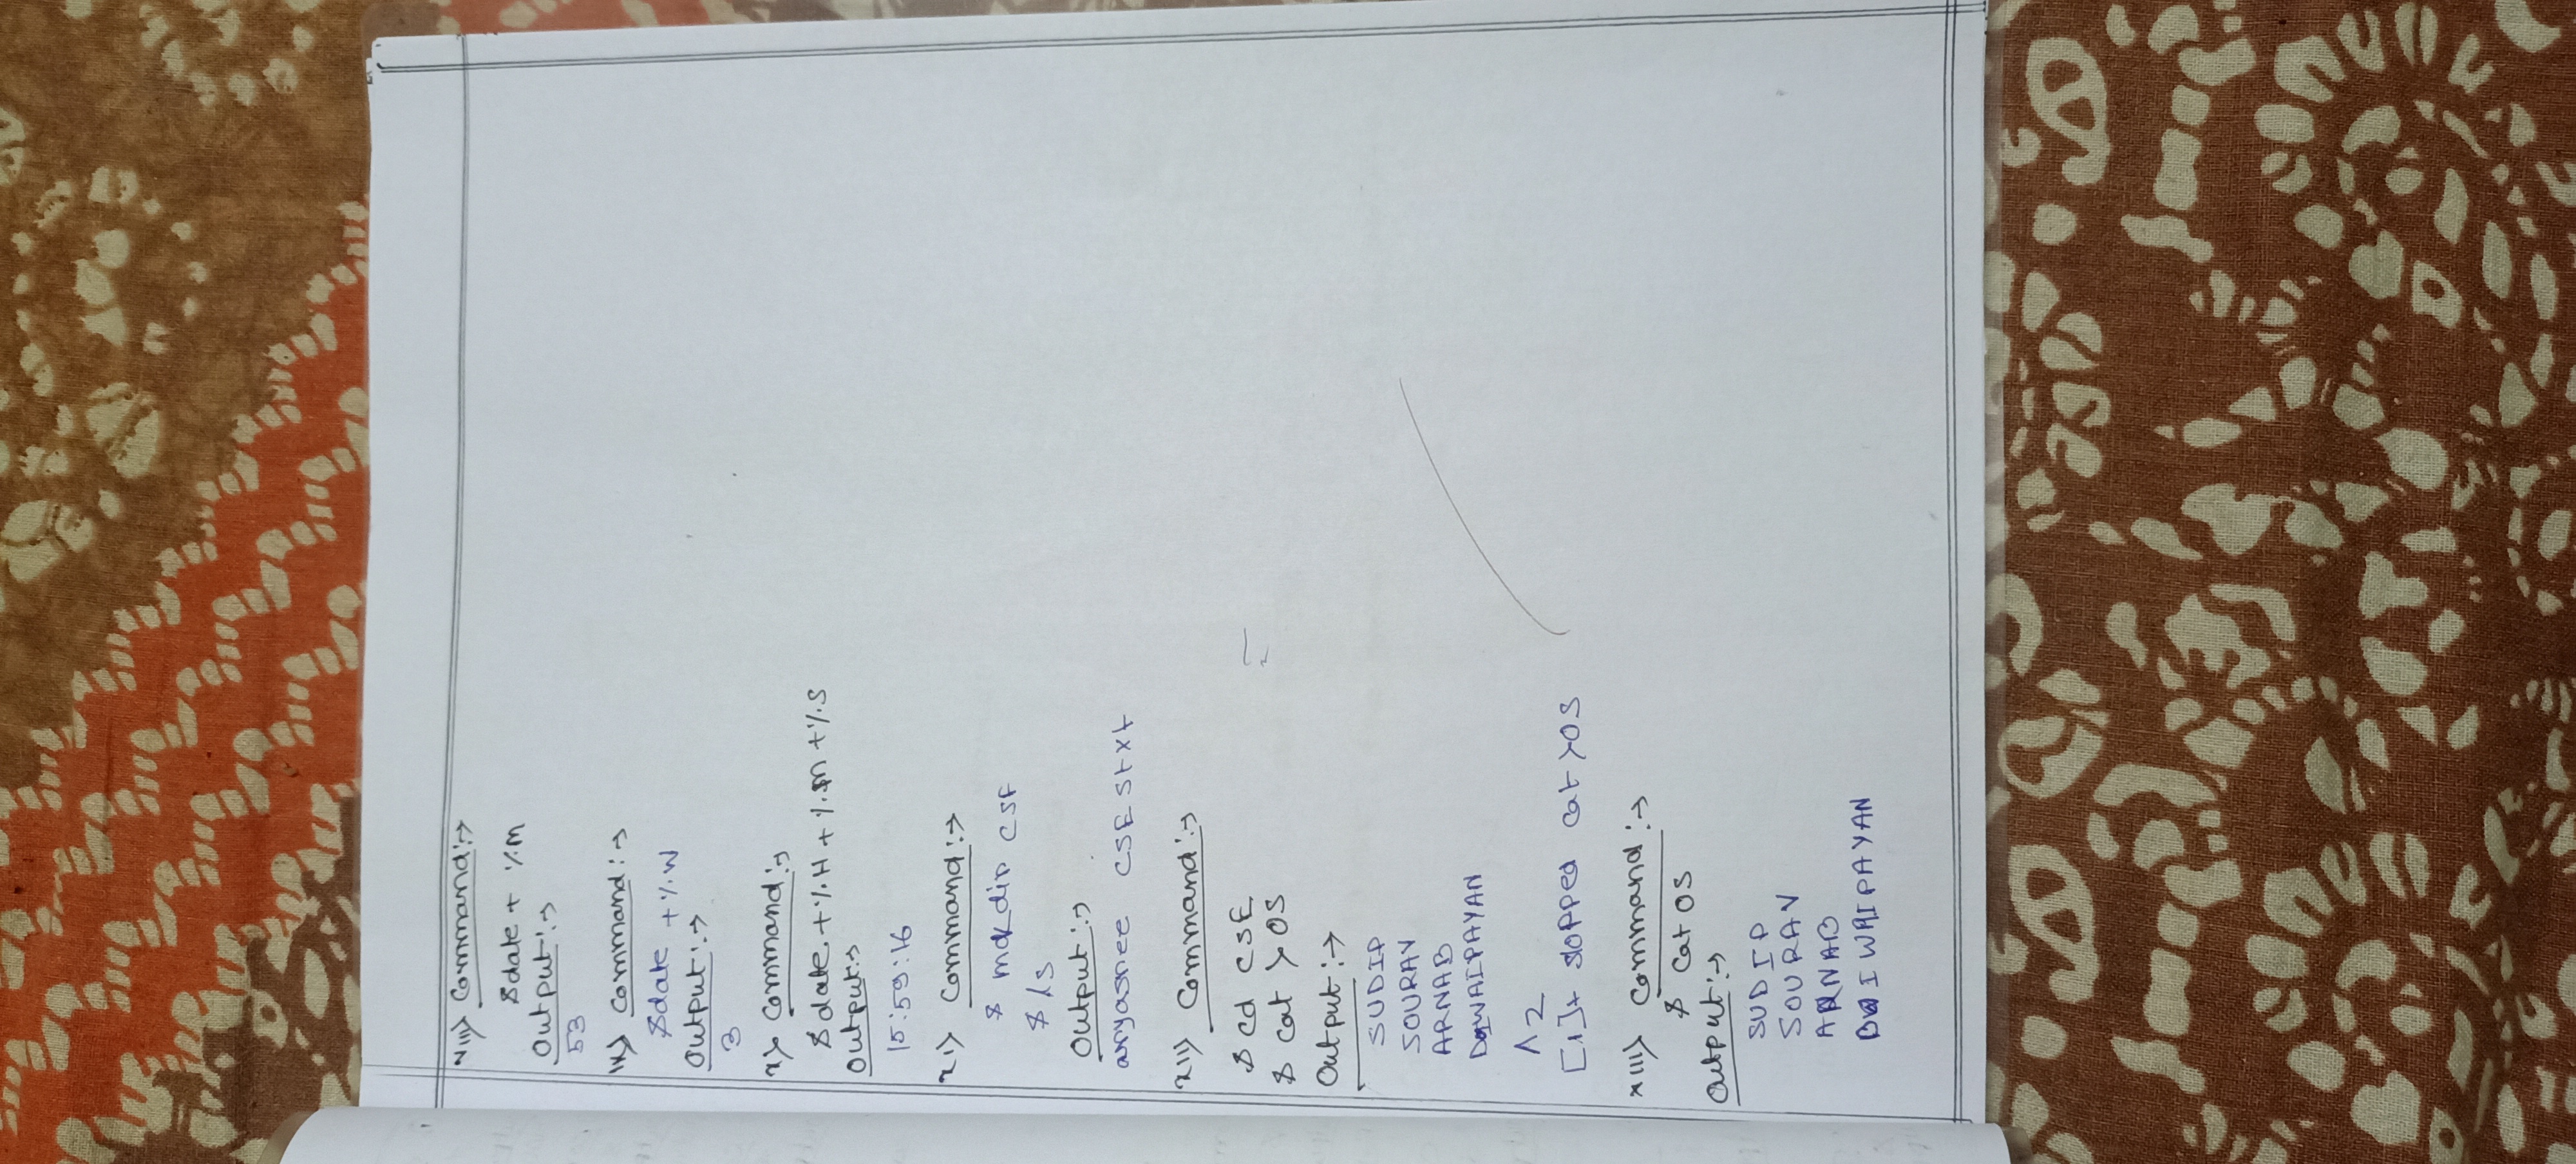 viii> Command:->
$date + %M
Output:->
53
ix> Command:->
$date +%W
Output:->
3
x> Command:->
$ date +%H + %M +%S
Output:->
15:59:16
xi> Command:->
$ mkdir CSE
$ ls
Output:->
CSE stxt
xii> Command:->
$ cd CSE
$ cat >OS
Output:->
SUDIP
SOURAV
ARNAB
DWAIPAYAN
^Z
[1]+ stopped cat >OS
xiii> Command:->
$ cat OS
Output:->
SUDIP
SOURAV
ARNAB
DWAIPAYAN